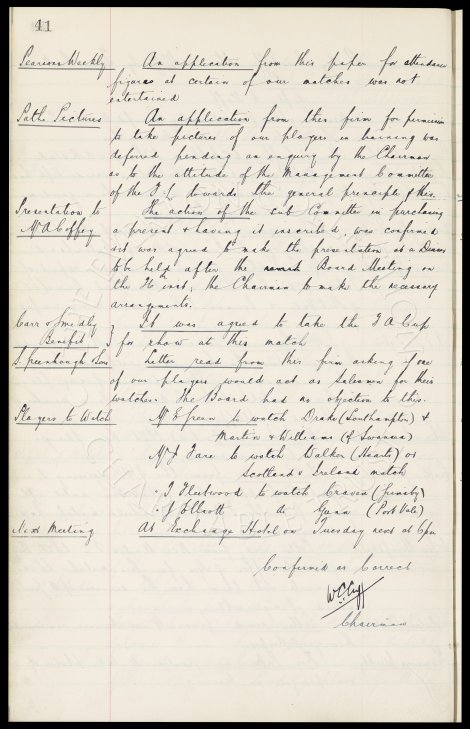 41
Pearsons Weekly An application from this paper for attendance
figures at certain of our matches was not
entertained
Pathe Pictures An application from this firm for permission
to take pictures of our players in training was
deferred pending an enquiry by the Chairman
as to the attitude of the Management Committee
of the F.L. towards the general principle of this.
Presentation to The action of the sub Committee in purchasing
Mr A Coffey a present & having it inscribed, was confirmed
& it was agreed to make the presentation at a Dinner
to be held after the Board Meeting on
the inst, the Chairman to make the necessary
arrangements.
Carr & Smedley It was agreed to take the F A Cup
Benefit for show at this match
S. Greenhough & Sons Letter read from this firm asking if one
of our players would act as salesman for their
watches. The Board has no objection to this.
Players to Watch Mr E Green to watch Drake (Southampton) &
Martin & Williams (of Swansea)
Mr J Fare to watch Walker (Hearts) in
Scotland v Ireland match
" T Fleetwood to watch Craven (Grimsby)
" J Elliott do Gunn (Port Vale)
Next Meeting At Exchange Hotel on Tuesday next at 6pm
Confirmed as Correct
W.C. Cuff
Chairman